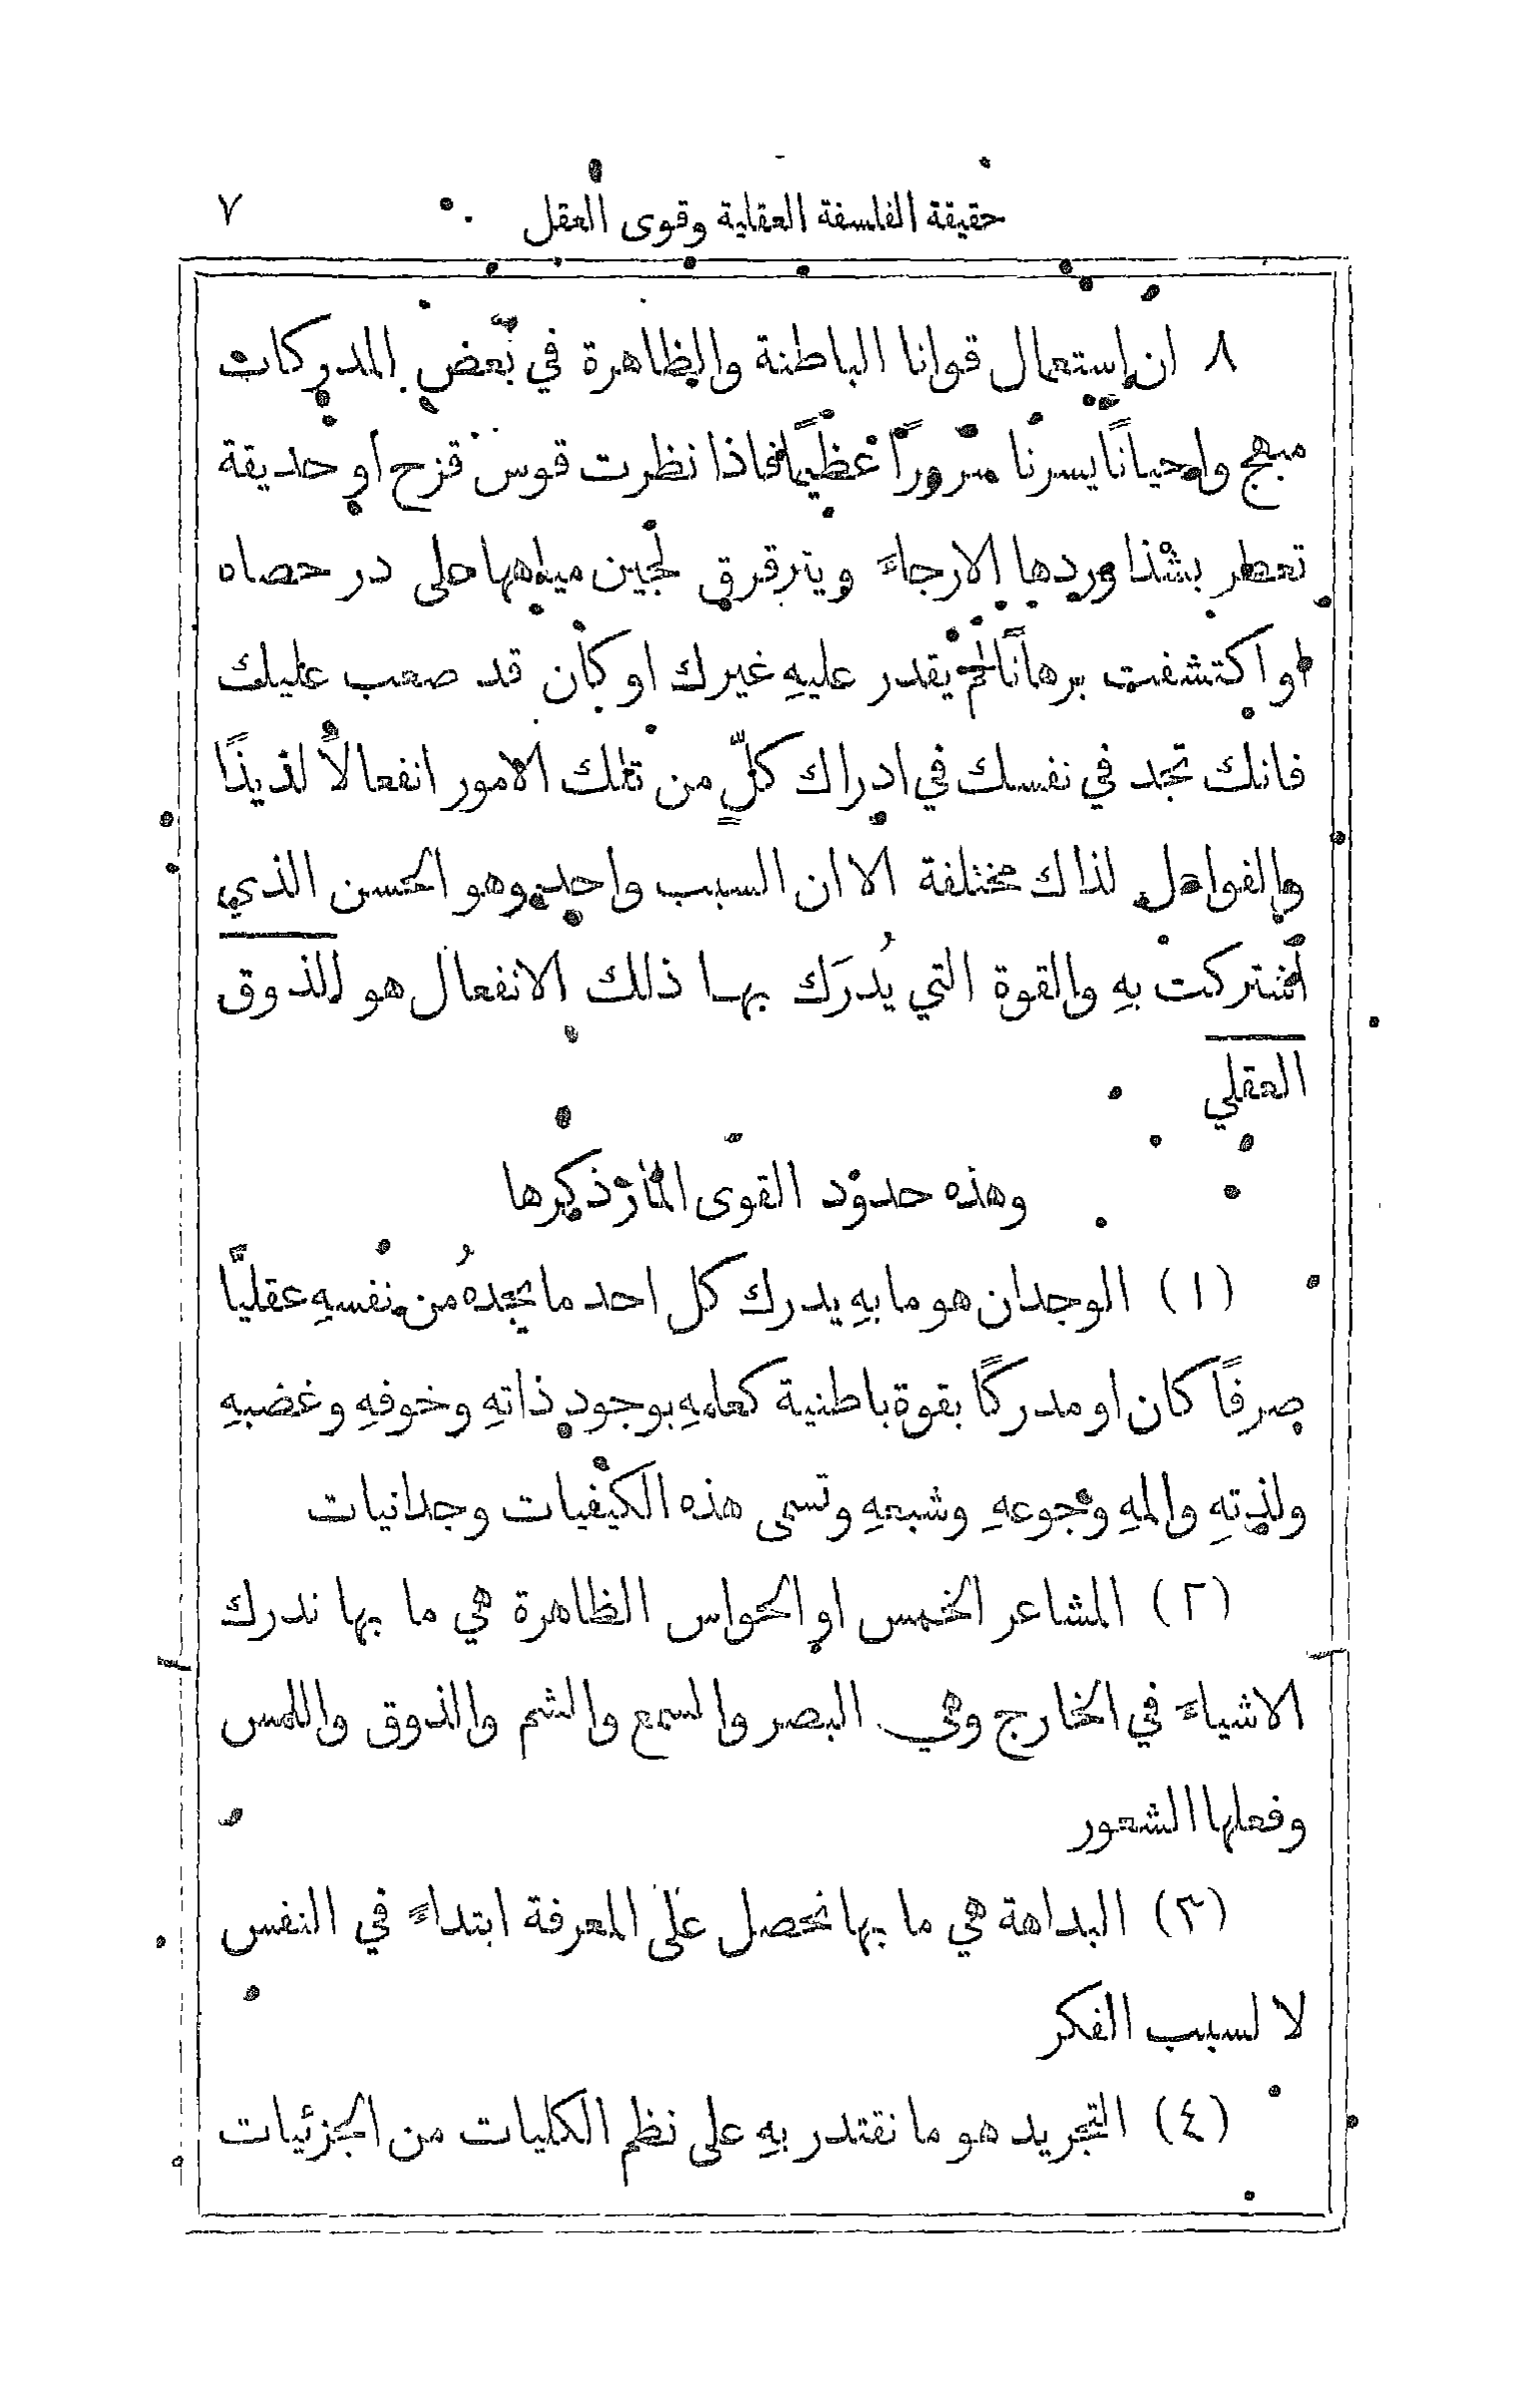 حقيقة الفلسفة العقلية وقوى العقل ٧
٨ ان استعمال قوانا الباطنة والظاهرة في بعض المدركات
مبهج واحيانًا يسرنا سرورًا عظيمًا فاذا نظرت قوس قزح او حديقة
تعطر بشذا وردها الارجاءَ ويترقرق لجين مياهها على در حصاه
او اكتشفت برهانًا لم يقدر عليهِ غيرك او كان قد صعب عليك
فانك تجد في نفسك في ادراك كلٍّ من تلك الامور انفعالاً لذيذًا
والفواعل لذاك مختلفة الا ان السبب واحد وهو الحسن الذي
اشتركت بهِ والقوة التي يُدرَك بها ذلك الانفعال هو الذوق
العقلي
وهذه حدود القوى المار ذكرها
(١) الوجدان هو ما بهِ يدرك كل احد ما يجدهُ من نفسهِ عقليًّا
صرفًا كان او مدركًا بقوة باطنية كعلمهِ بوجود ذاتهِ وخوفهِ وغضبهِ
ولذتهِ والمهِ وجوعهِ وشبعهِ وتسمى هذه الكيفيات وجدانيات
(٢) المشاعر الخمس او الحواس الظاهرة هي ما بها ندرك
الاشياءَ في الخارج وهي البصر والسمع والشم والذوق واللمس
وفعلها الشعور
(٣) البداهة هي ما بها نحصل على المعرفة ابتداءً في النفس
لا لسبب الفكر
(٤) التجريد هو ما نقتدر بهِ على نظم الكليات من الجزئيات